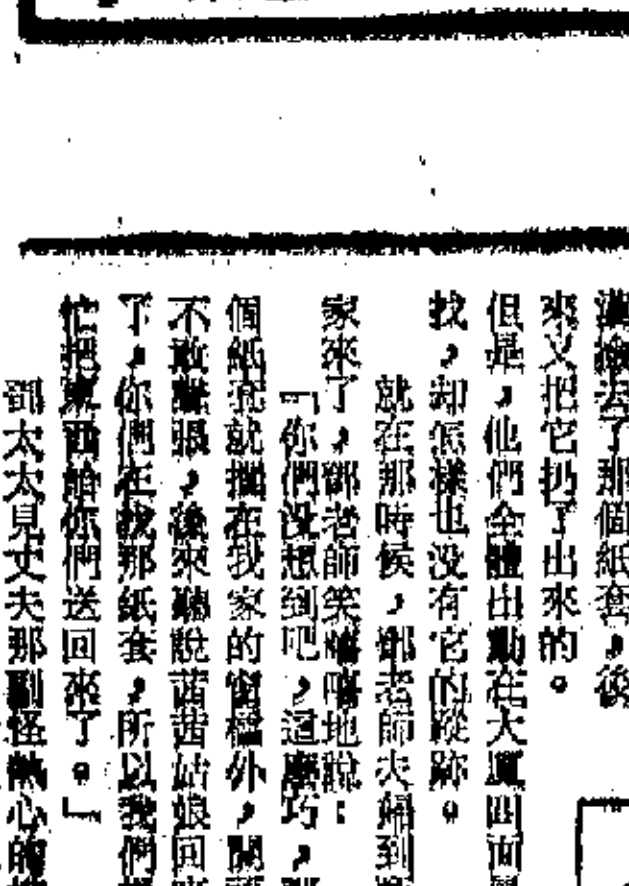 去了那個紙套，後
來又把它扔了出來的。
但是，他們全體出動在大廈四面
找，却怎樣也没有它的蹤跡。
就在那時候，鄧老師夫婦到
家來了，鄧老師笑嘻嘻地說：
「你們没想到吧，這麼巧，那
個紙套就擱在我家的窗檻外，開
不敢聲張，後來聽說茜茜姑娘回
了，你們在找那紙套，所以我們
忙把東西給你們送回來了。」
劉太太見丈夫那副怪熱心的